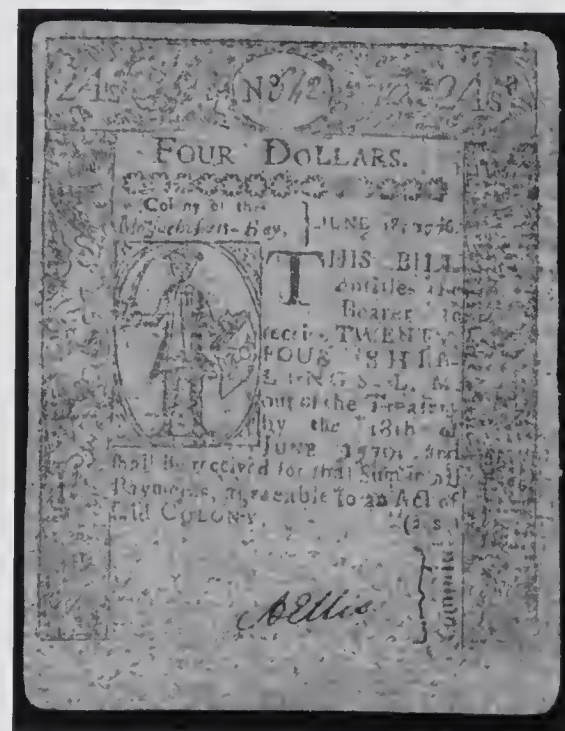 24s No 24s
FOUR DOLLARS.
Colony of the
Massachusetts-Bay, JUNE 18, 1776.
THIS BILL
entitles the
Bearer to
receive TWENTY-
FOUR SHIL-
LINGS L. M.
out of the Treasury
by the 18th of
JUNE and
shall be received for that Sum in all
Payments, agreeable to an Act of
said COLONY.
AEllis
Committee